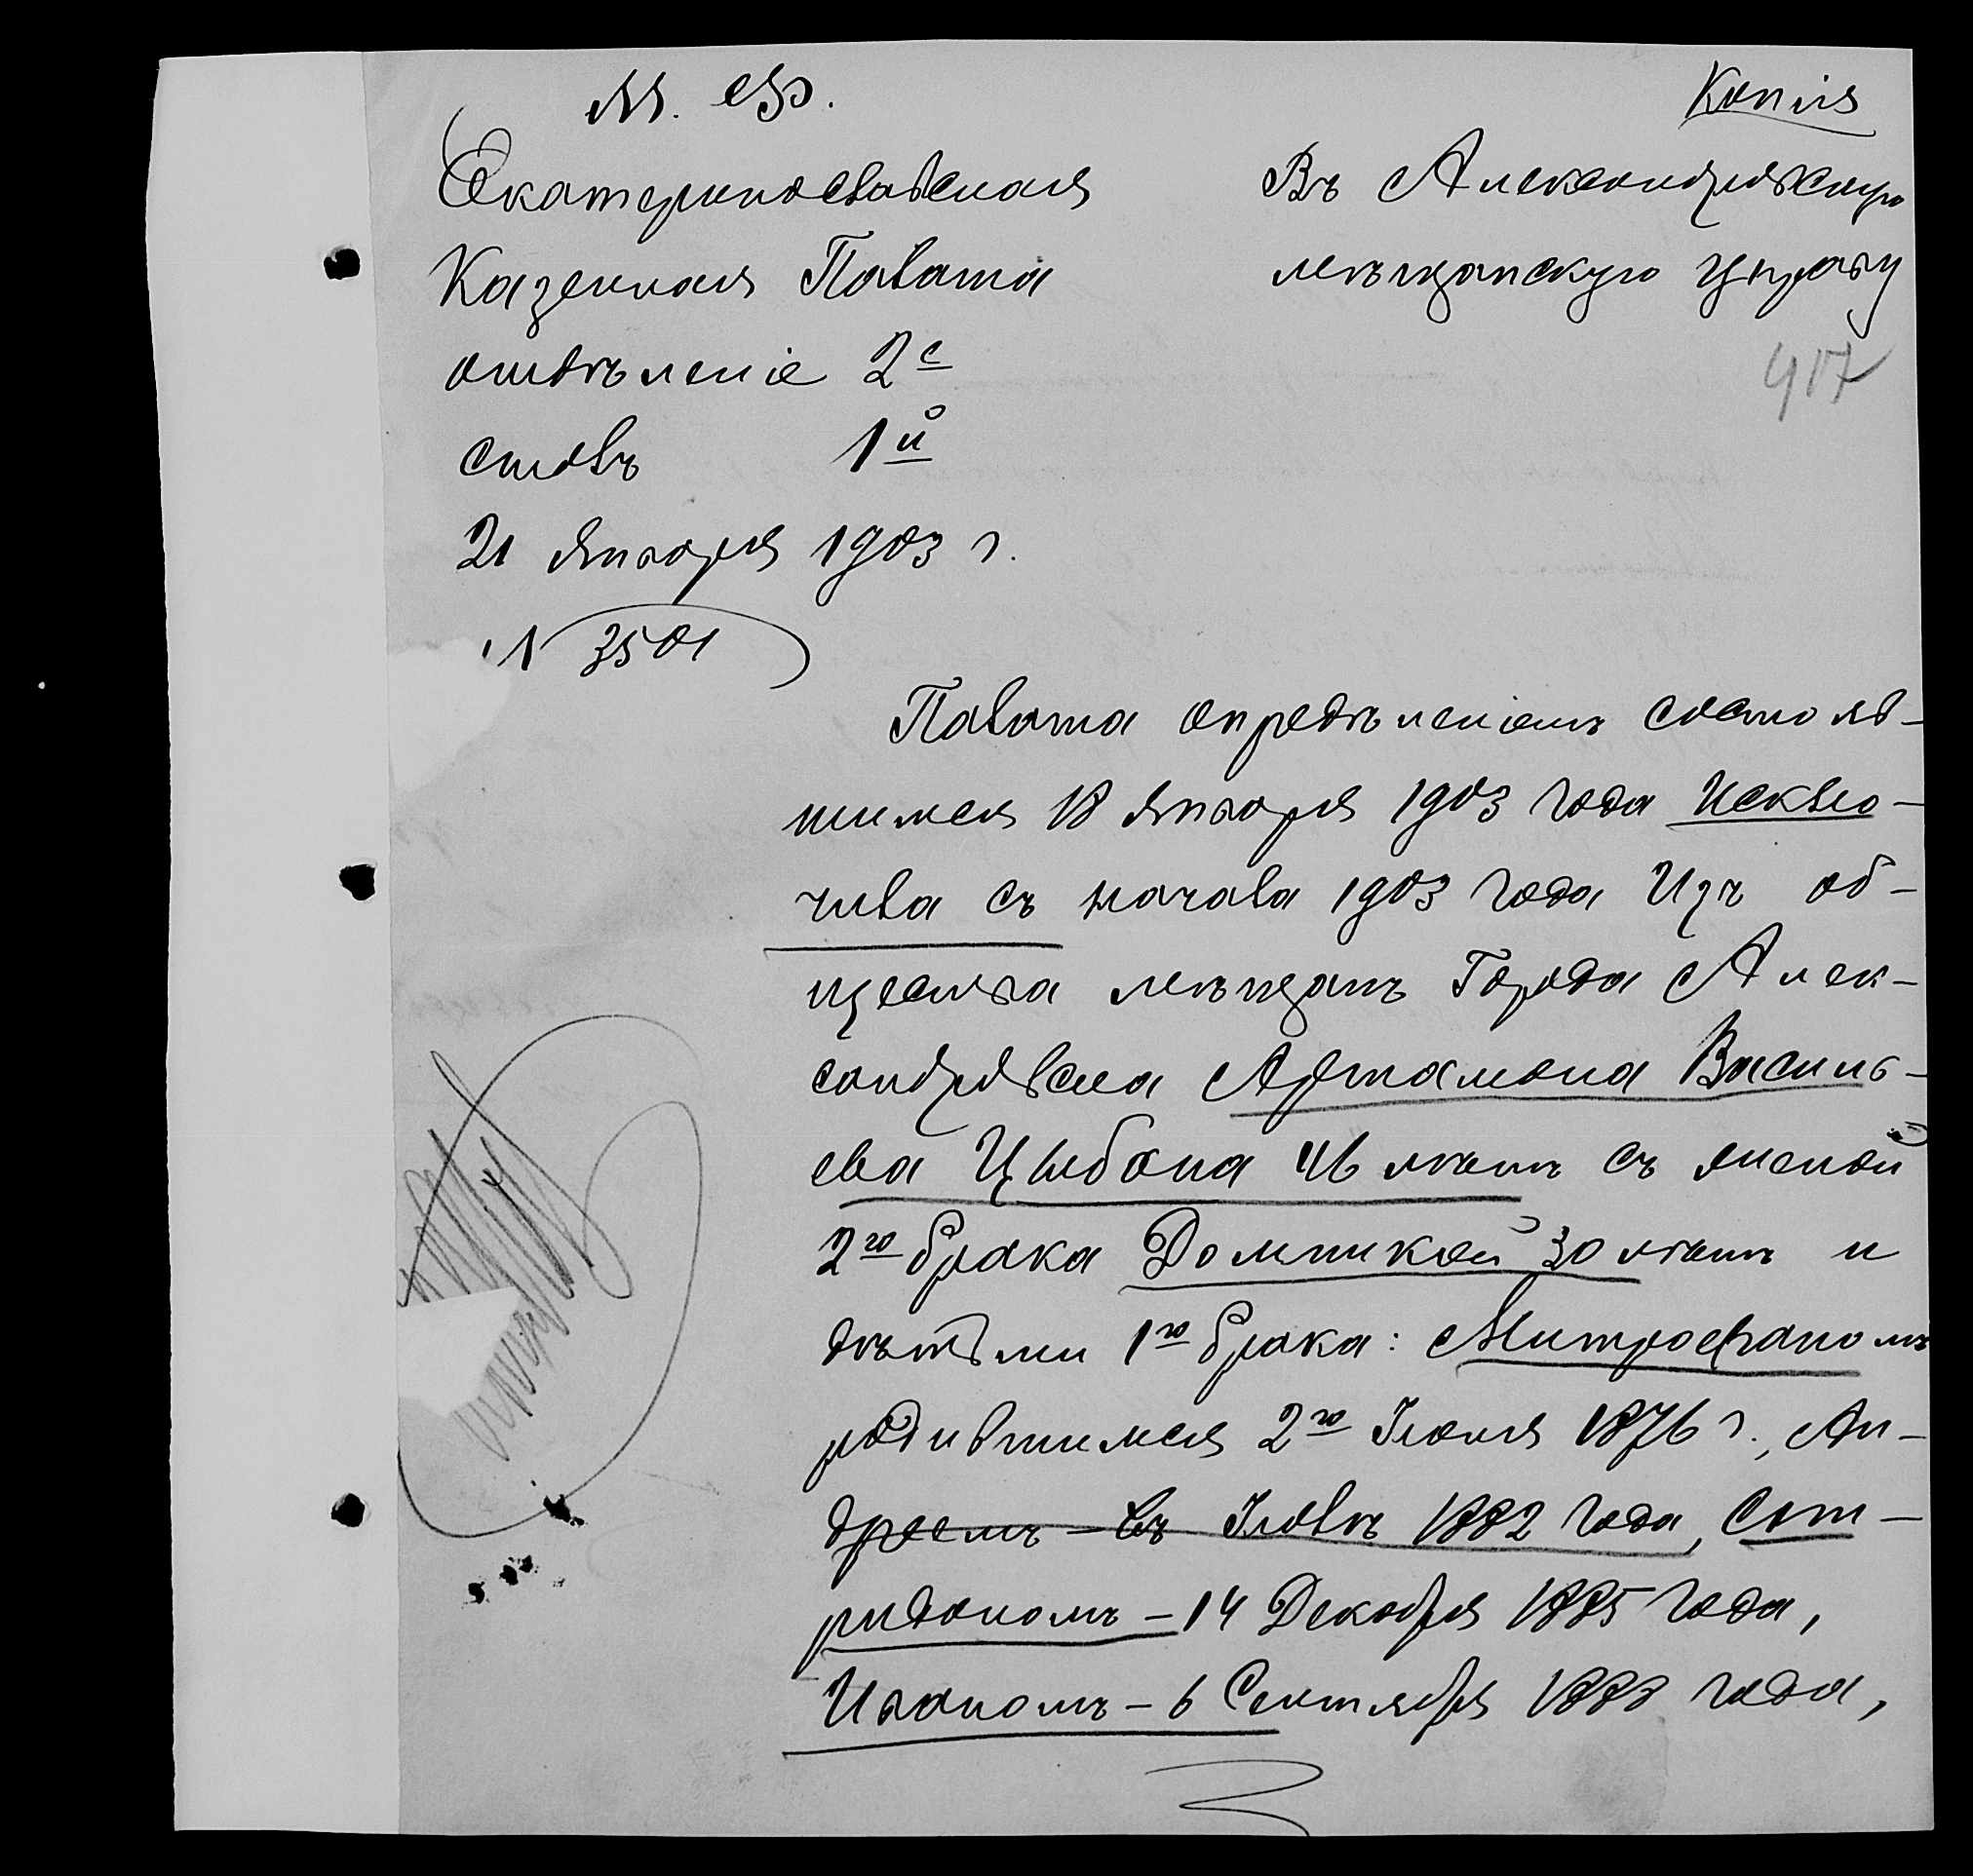 М. Ф.
Копія
Екатеринославская
Казенная Палата
отдѣленіе 2е
столъ 1й
21 Января 1903 г.
№ 3501
Въ Александровскую
мѣщанскую управу
417
Палата опредѣленіемъ состояв-
шимся 18 Января 1903 года исклю-
чила съ начала 1903 года изъ об-
щества мѣщанъ города Алек-
сандровска Артамона Василь-
ева Цыбана 46 лѣтъ съ женой
2го брака Домникой 30 лѣтъ и
дѣтьми 1го брака: Митрофаномъ
родившимся 2го Іюня 1876 г., Ан-
дреемъ - въ Іюлѣ 1882 года, Спи-
ридономъ - 14 Декабря 1885 года,
Иваномъ - 6 Сентября 1888 года,